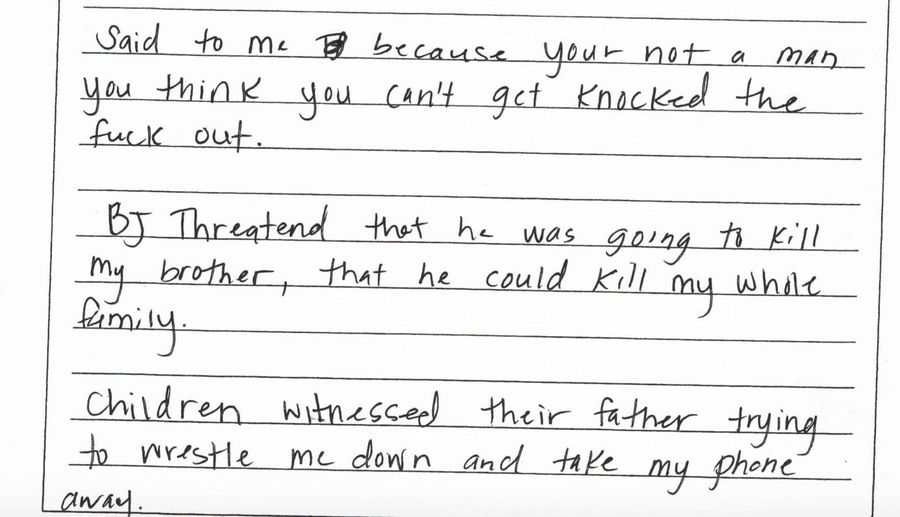 Said to me because your not a man
you think you can't get knocked the
fuck out.
BJ Threatend that he was going to kill
my brother, that he could kill my whole
family.
Children witnessed their father trying
to wrestle me down and take my phone
away.